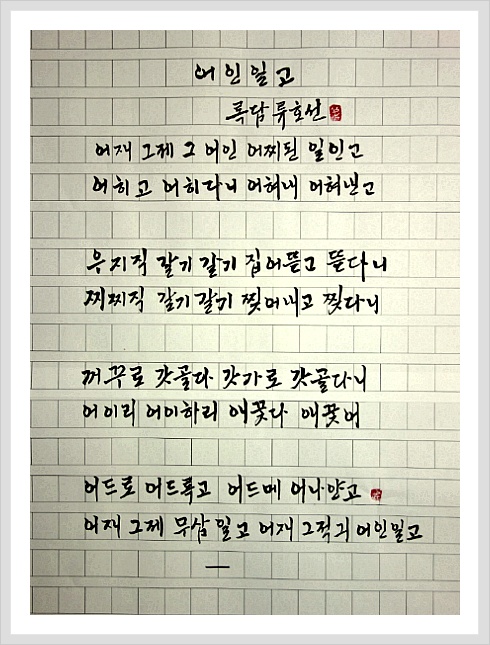 어인일고
록담 류호선
어재 그제 그 어인 어찌된 일인고
어히고 어히다니 어혀내 어혀낸고
우지직 갈기갈기 집어뜯고 뜯다니
찌찌직 갈기갈기 찢어내고 찢다니
꺼꾸로 갓골다 갓가로 갓골다니
어이리 어이하리 애꽂다 애꽂어
어드로 어드록고 어드메 어나얀고
어재 그제 무삼 일고 어재 그적긔 어인일고